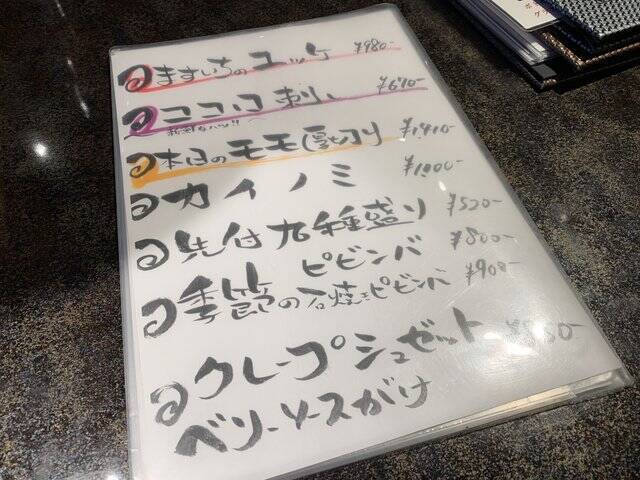 ますいちのユッケ ¥980-
ココロ刺し ¥690-
新鮮なハツ!!
本日のモモ厚切り ¥1,410-
カイノミ ¥1,000-
先付九種盛り ¥520-
ビビンバ ¥800-
季節の石焼きビビンバ ¥900-
クレープシュゼット
ベリーソースがけ